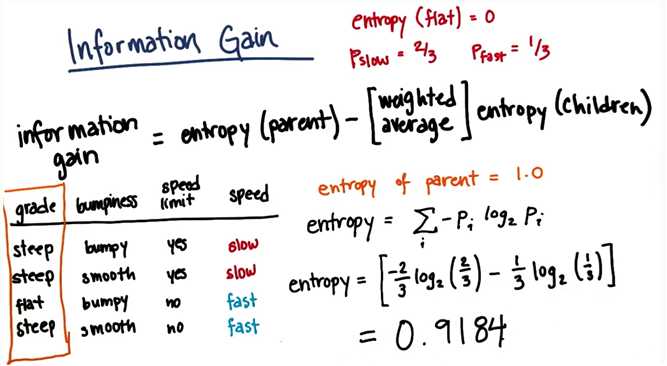 Information Gain
entropy (flat) = 0
Pslow = 2/3 Pfast = 1/3
information gain = entropy (parent) - [weighted average] entropy (children)
grade bumpiness speed limit speed
steep bumpy yes slow
steep smooth yes slow
flat bumpy no fast
steep smooth no fast
entropy of parent = 1.0
entropy = Σi -Pi log2 Pi
entropy = [-2/3 log2 (2/3) - 1/3 log2 (1/3)]
= 0.9184